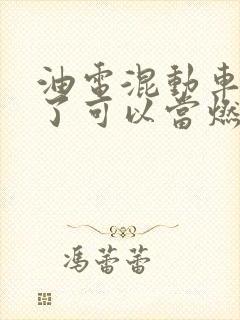 油电混動車
了可以當燃
馮蕾蕾